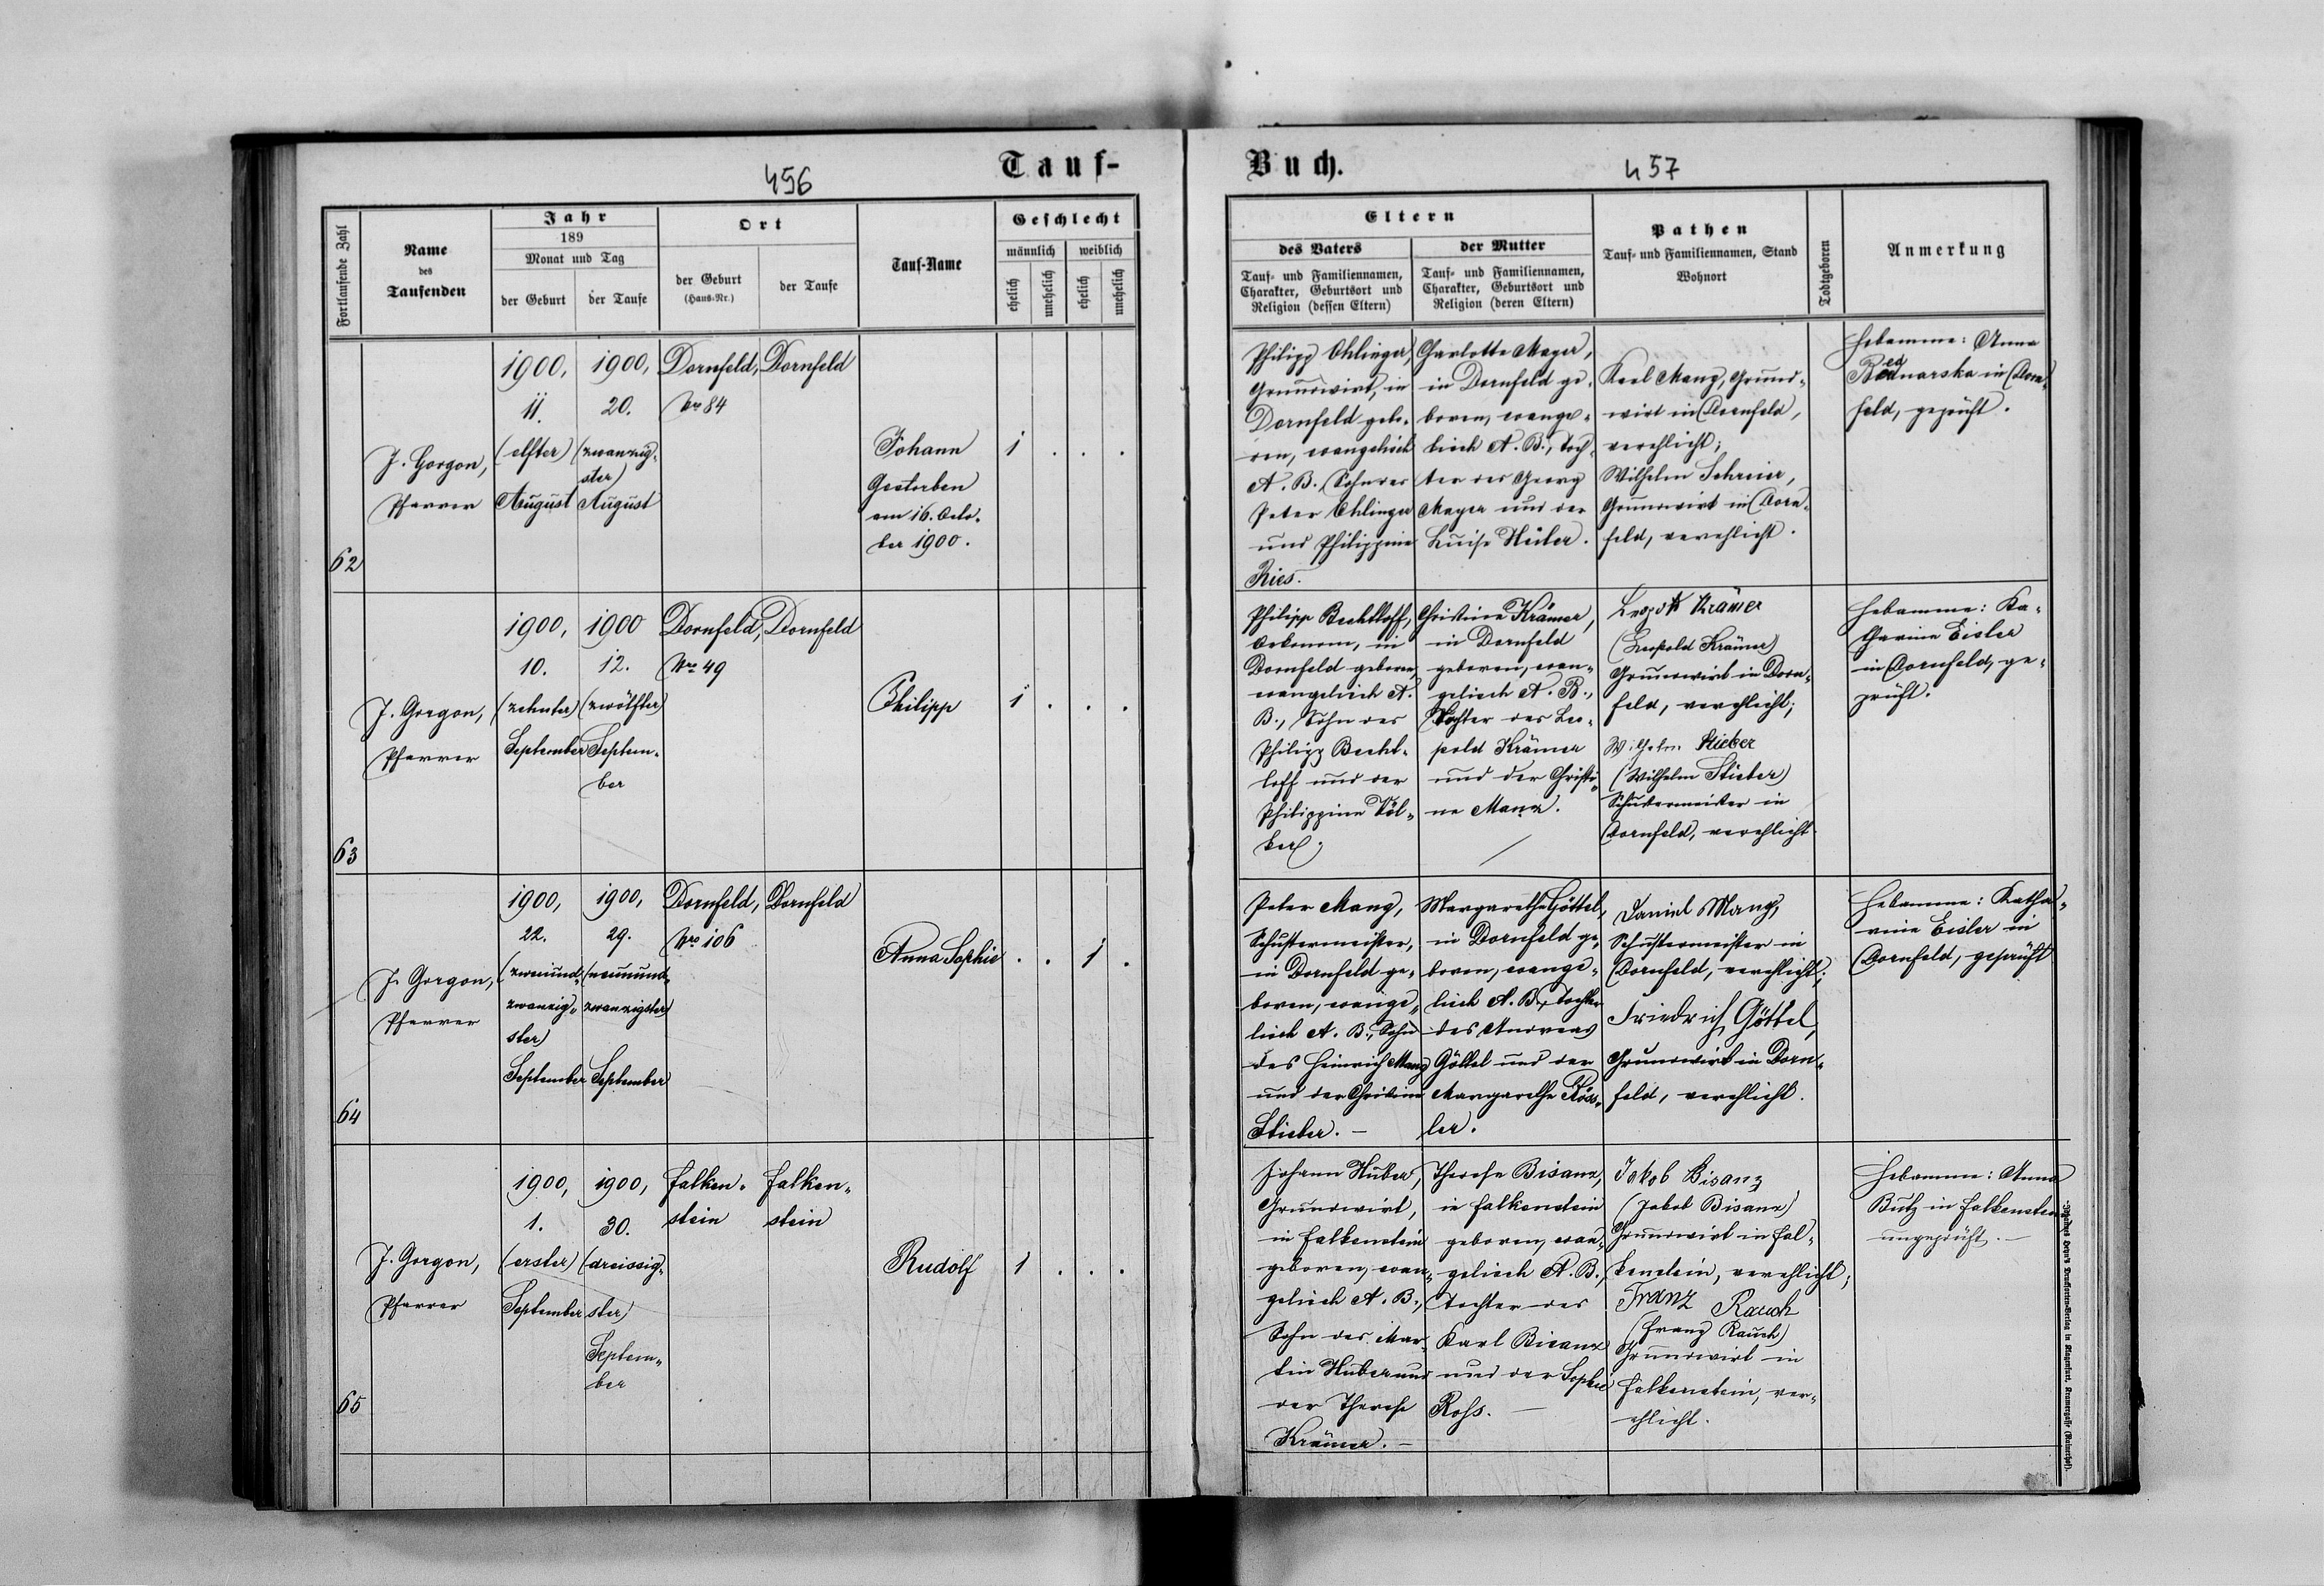 456
Tauf-
Fortlaufende Zahl
Name
des
Taufenden
Jahr
189
Monat und Tag
der Geburt
der Taufe
Ort
der Geburt
(Haus-Nr.)
der Taufe
Tauf-Name
Geschlecht
männlich
weiblich
ehelich
unehelich
ehelich
unehelich
62
J. Gorgon,
Pfarrer
1900,
11.
(elfter)
August
1900,
20.
(zwanzig-
ster)
August
Dornfeld,
Nro 84
Dornfeld
Johann
Gestorben
am 16. Octo-
ber 1900.
1 . . .
63
J. Gorgon,
Pfarrer
1900,
10.
(zehnter)
September
1900
12.
(zwölfter)
Septem-
ber
Dornfeld,
Nro 49
Dornfeld
Philipp
1 . . .
64
J. Gorgon,
Pfarrer
1900,
22.
(zweiund-
zwanzig-
ster)
September
1900,
29.
(neunund-
zwanzigster)
September
Dornfeld,
Nro 106
Dornfeld
Anna Sophie
. . 1 .
65
J. Gorgon,
Pfarrer
1900,
1.
(erster)
September
1900,
30.
(dreissig-
ster)
Septem-
ber
Falken-
stein
Falken-
stein
Rudolf
1 . . .
Buch.
457
Eltern
des Vaters
Tauf- und Familiennamen,
Charakter, Geburtsort und
Religion (dessen Eltern)
der Mutter
Tauf- und Familiennamen,
Charakter, Geburtsort und
Religion (deren Eltern)
Pathen
Tauf- und Familiennamen, Stand
Wohnort
Todtgeboren
Anmerkung
Philipp Ohlinger,
Grundwirt, in
Dornfeld gebo-
ren, evangelisch
A. B. Sohn des
Peter Ohlinger
und Philippine
Ries.
Charlotte Mayer,
in Dornfeld ge-
boren, evange-
lisch A. B., Toch-
ter des Georg
Mayer und der
Luise
Karl Manz, Grund-
wirt in Dornfeld,
verehlicht;
Wilhelm Schreier,
Grundwirt in Dorn-
feld, verehlicht.
Hebamme: Anna
Bednarska in Dorn-
feld, geprüft.
Philipp Bechtloff,
Oekonom, in
Dornfeld geboren,
evangelisch A.
B., Sohn des
Philipp Becht-
loff und der
Philippine Völ-
ker.
Christine Krämer,
in Dornfeld
geboren, evan-
gelisch A. B.,
Tochter des Leo-
pold Krämer
und der Christi-
ne Manz.
Leopold Krämer
(Leopold Krämer)
Grundwirt in Dorn-
feld, verehlicht;
Wilhelm Stieber
(Wilhelm Stieber)
Schustermeister in
Dornfeld, verehlicht
Hebamme: Ka-
tharina Eisler
in Dornfeld, ge-
prüft.
Peter Manz,
Schustermeister,
in Dornfeld ge-
boren, evange-
lisch A. B., Sohn
des Heinrich Manz
und der Christine
Stieber. –
Margarethe Göttel,
in Dornfeld ge-
boren, evange-
lisch A. B., Tochter
des Andreas
Göttel und der
Margarethe Röss-
ler.
Daniel Manz,
Schustermeister in
Dornfeld, verehlicht;
Friedrich Göttel,
Grundwirt in Dorn-
feld, verehlicht.
Hebamme: Katha-
rina Eisler in
Dornfeld, geprüft
Johann Huber,
Grundwirt,
in Falkenstein
geboren, evan-
gelisch A. B.,
Sohn des Mar-
tin Huber und
der Therese
Krämer. –
Therese Bisanz,
in Falkenstein
geboren, evan-
gelisch A. B.,
Tochter des
Karl Bisanz
und der Sophie
Ross. –
Jakob Bisanz
(Jakob Bisanz)
Grundwirt in Fal-
kenstein, verehlicht;
Franz Rauch
(Franz Rauch)
Grundwirt in
Falkenstein, ver-
ehlicht.
Hebamme: Anna
Butz in Falkenstein
ungeprüft. –